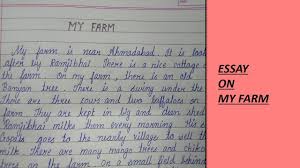 MY FARM
My farm is near Ahmadabad. It is look
after by Ramjibhai. There is a nice cottage o
the farm. On my farm, there is an old
Banyan tree. There is a swing under the
There are three cows and two buffaloes on
farm. They are kept in big and clean shed
Ramjibhai milks them every morning. His s
Gopal goes to the nearby village to sell th
There are many mango trees and chiko
trees on the farm. On a small field behind
ESSAY
ON
MY FARM